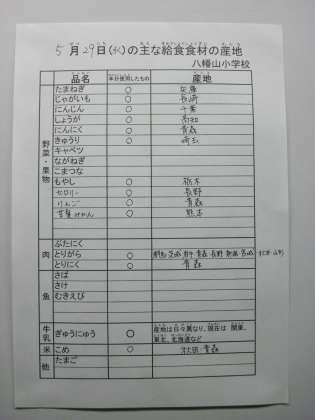 5月29日(水)の主な給食食材の産地
八幡山小学校
品名 本日使用したもの 産地
野菜・果物
たまねぎ ○ 兵庫
じゃがいも ○ 長崎
にんじん ○ 千葉
しょうが ○ 高知
にんにく ○ 青森
きゅうり ○ 埼玉
キャベツ
ながねぎ
こまつな
もやし ○ 栃木
セロリー ○ 長野
りんご ○ 青森
甘夏みかん ○ 熊本
肉
ぶたにく
とりがら ○ 茨城 岩手 青森 長野 宮崎
とりにく ○ 青森
魚
さば
さけ
むきえび
牛乳 ぎゅうにゅう ○ 産地は日々異なり、現在は 関東、
東北、北海道など
米 こめ ○ 秋田 青森
他 たまご